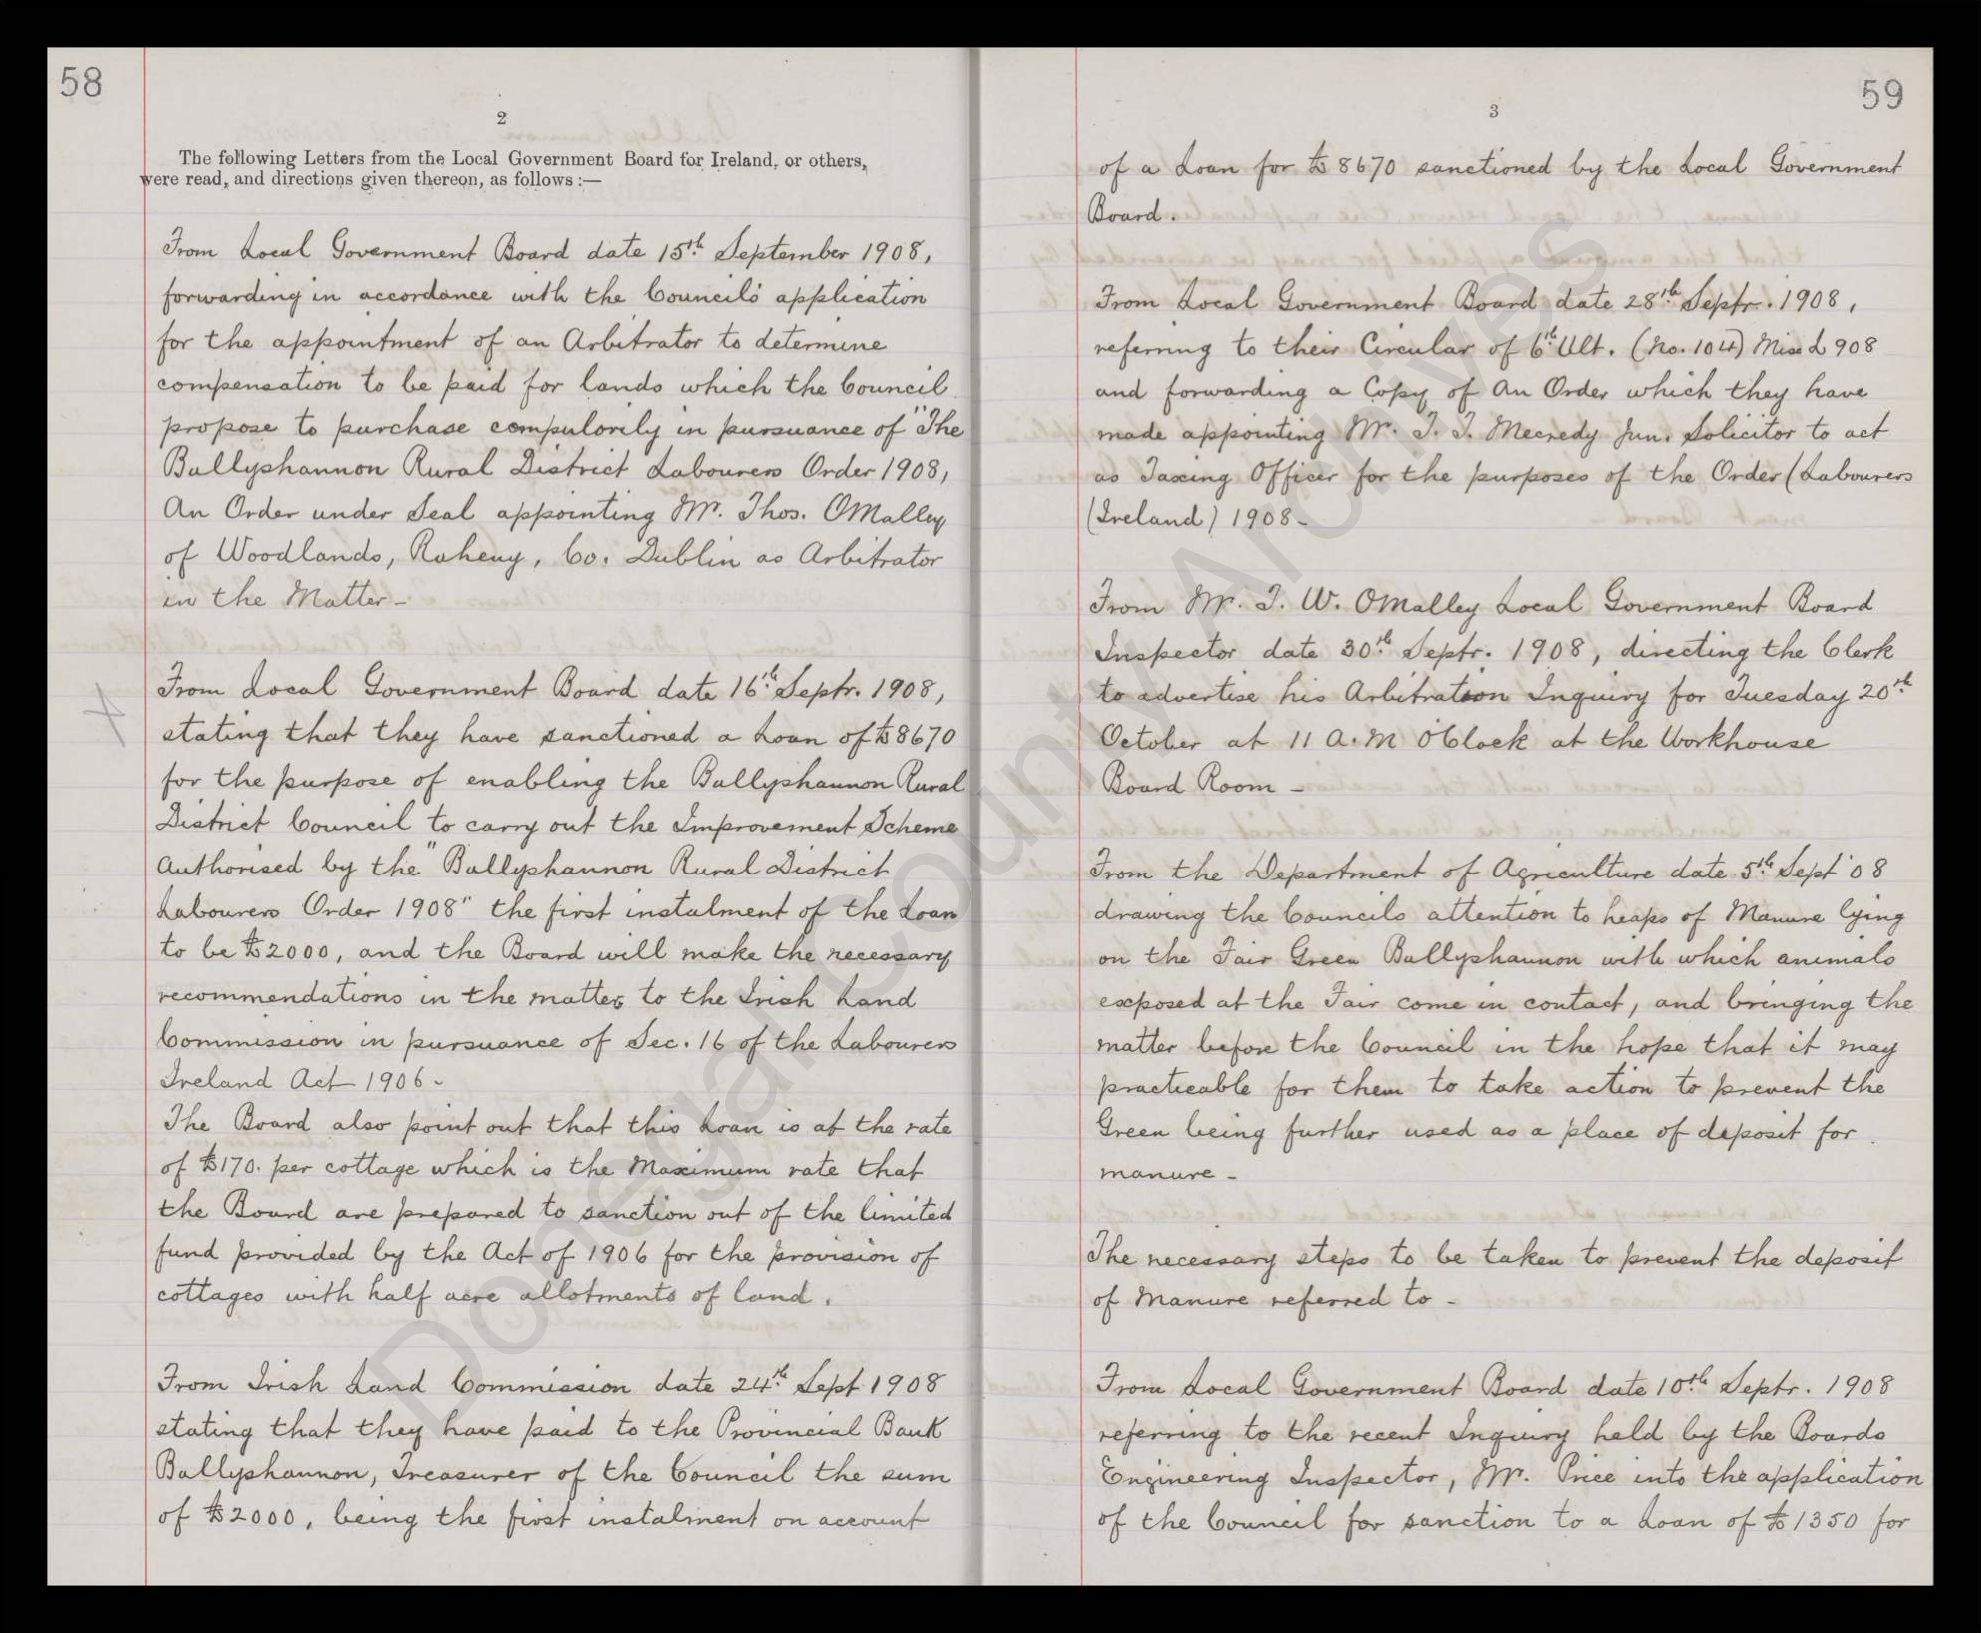 58
2
The following Letters from the Local Government Board for Ireland, or others,
were read, and directions given thereon, as follows :—
From Local Government Board date 15th September 1908,
forwarding in accordance with the Council's application
for the appointment of an Arbitrator to determine
compensation to be paid for lands which the Council
propose to purchase compulorily in pursuance of "The
Ballyshannon Rural District Labourers Order 1908,
An Order under Seal appointing Mr. Thos. OMalley
of Woodlands, Raheny, Co. Dublin as Arbitrator
in the Matter -
From Local Government Board date 16th Septr. 1908,
stating that they have sanctioned a Loan of £8670
for the purpose of enabling the Ballyshannon Rural
District Council to carry out the Improvement Scheme
Authorised by the "Ballyshannon Rural District
Labourers Order 1908" the first instalment of the Loan
to be £2000, and the Board will make the necessary
recommendations in the matter to the Irish Land
Commission in pursuance of Sec. 16 of the Labourers
Ireland Act 1906 -
The Board also point out that this Loan is at the rate
of £170. per cottage which is the Maximum rate that
the Board are prepared to sanction out of the limited
fund provided by the Act of 1906 for the provision of
cottages with half acre allotments of land.
From Irish Land Commission date 24th Sept 1908
stating that they have paid to the Provincial Bank
Ballyshannon, Treasurer of the Council the sum
of £2000, being the first instalment on account
59
3
of a Loan for £8670 sanctioned by the Local Government
Board.
From Local Government Board date 28th Septr. 1908,
referring to their Circular of 6th Ult. (No. 104) Misc L 908
and forwarding a Copy of An Order which they have
made appointing Mr. T. T. Mecredy Jun. Solicitor to act
as Taxing Officer for the purposes of the Order (Labourers
(Ireland) 1908 -
From Mr. T. W. OMalley Local Government Board
Inspector date 30th Septr. 1908, directing the Clerk
to advertise his Arbitration Inquiry for Tuesday 20th
October at 11 A.M O'Clock at the Workhouse
Board Room -
From the Department of Agriculture date 5th Sept '08
drawing the Councils attention to heaps of Manure lying
on the Fair Green Ballyshannon with which animals
exposed at the Fair come in contact, and bringing the
matter before the Council in the hope that it may
practicable for them to take action to prevent the
Green being further used as a place of deposit for
manure -
The necessary steps to be taken to prevent the deposit
of Manure referred to -
From Local Government Board date 10th Septr. 1908
referring to the recent Inquiry held by the Boards
Engineering Inspector, Mr. Price into the application
of the Council for sanction to a Loan of £1350 for
Donegal County Archives